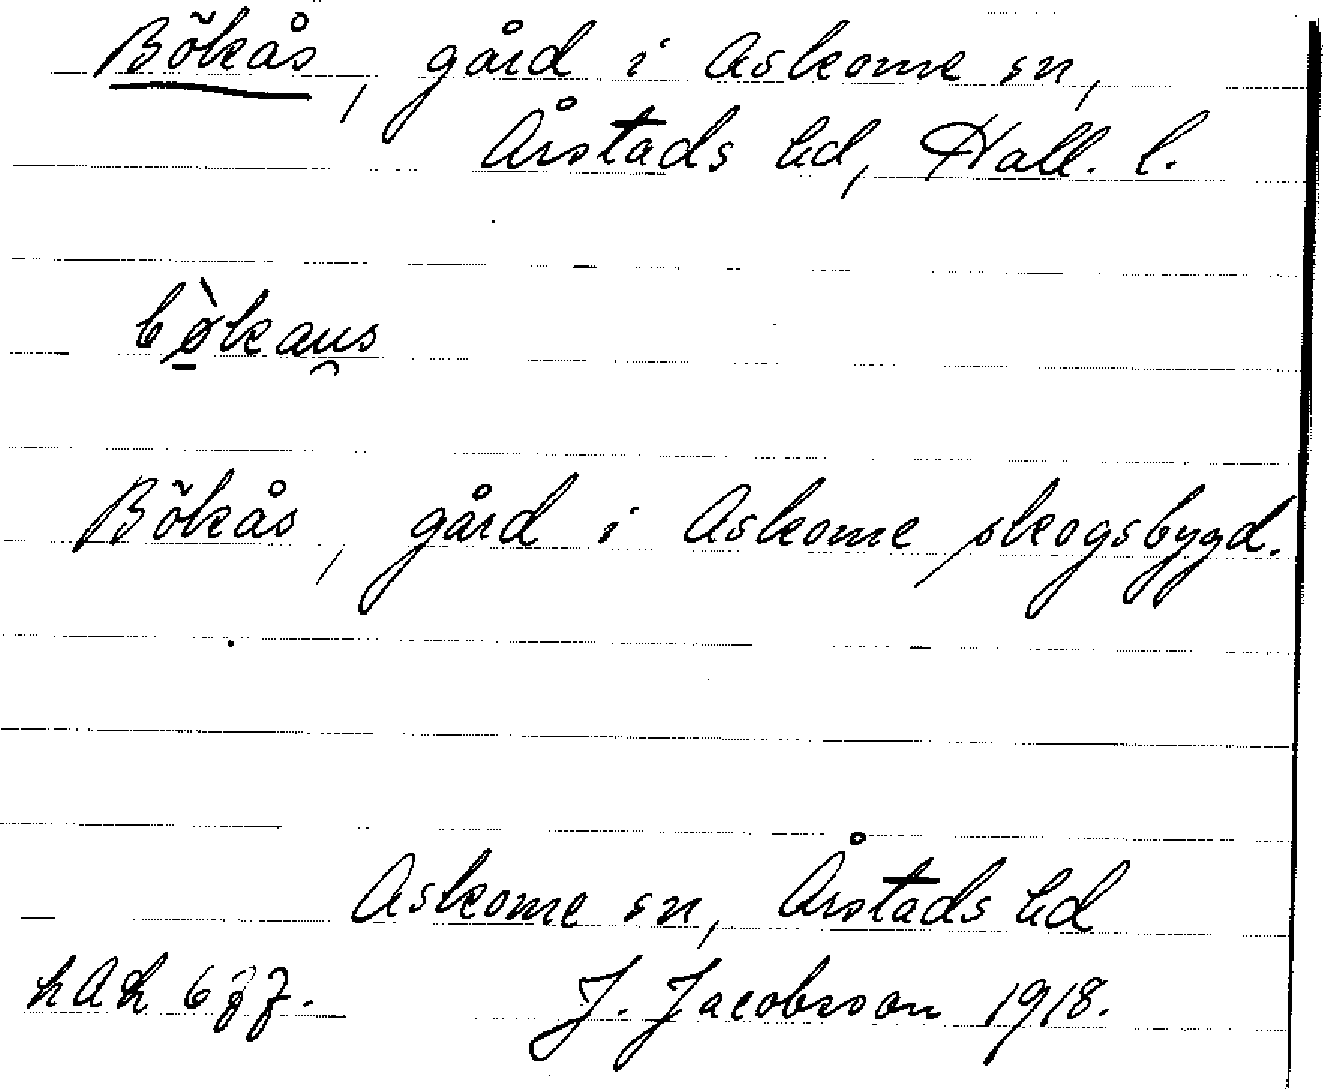 Bökås, gård i Askome sn,
Årstads hd, Hall. l.
bø̀kau̯s
Bökås, gård i Askome skogsbygd.
Askome sn, Årstads hd
J. Jacobsson 1918.